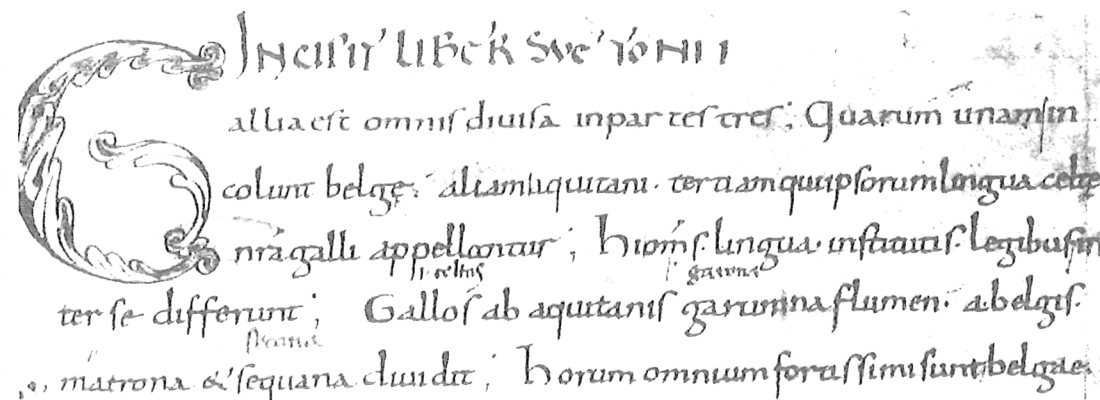 INCIPIT LIBER SVETONII
Gallia est omnis diuisa in partes tres; Quarum unam in
colunt belgę. aliam aquitani. tertiam qui ipsorum lingua celtę
nr̄a galli appellantur; hi om̄s lingua. institutis. legibus in
ter se differunt; Gallos ab aquitanis garunna flumen. a belgis.
matrona & sequana diuidit; horum omnium fortissimi sunt belgae.